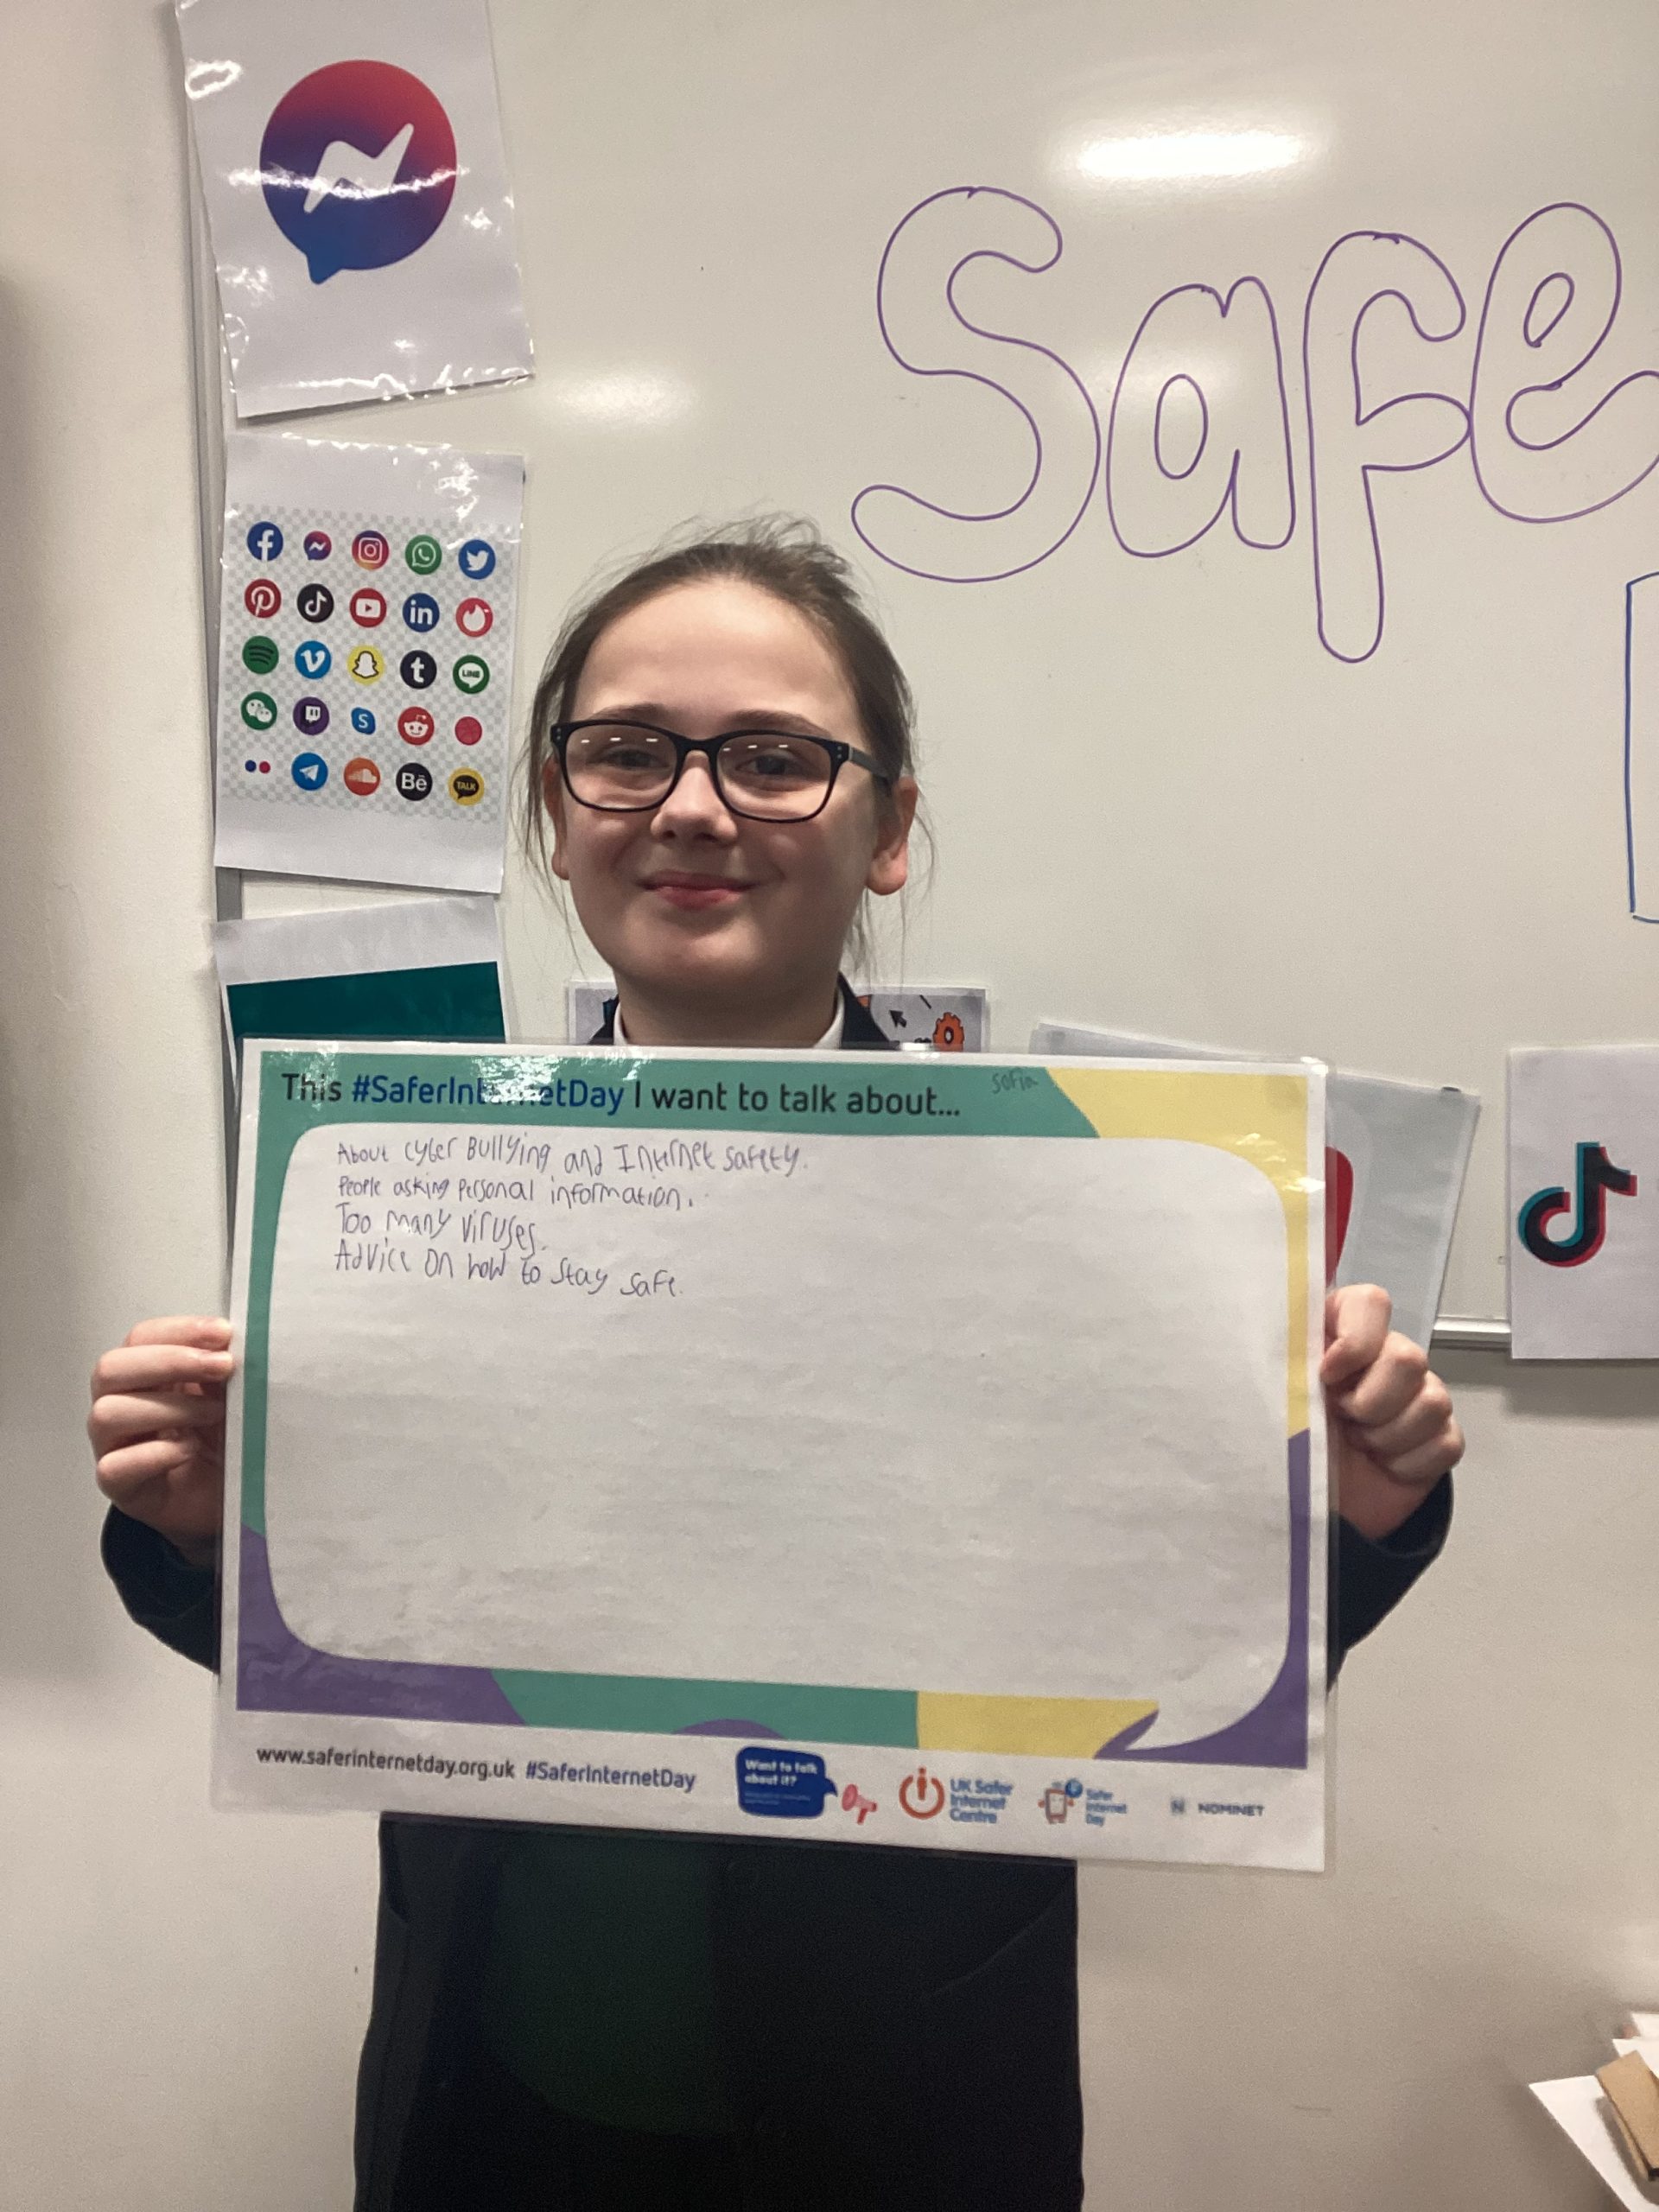 Safe
in
t
LINE
S
Bē
TALK
This #SaferInternetDay I want to talk about...
sofia
About cyber Bullying and Internet safety.
People asking personal information.
Too many viruses.
Advice on how to stay safe.
www.saferinternetday.org.uk #SaferInternetDay
Want to talk
about it?
UK Safer
Internet
Centre
Safer
Internet
Day
N NOMINET